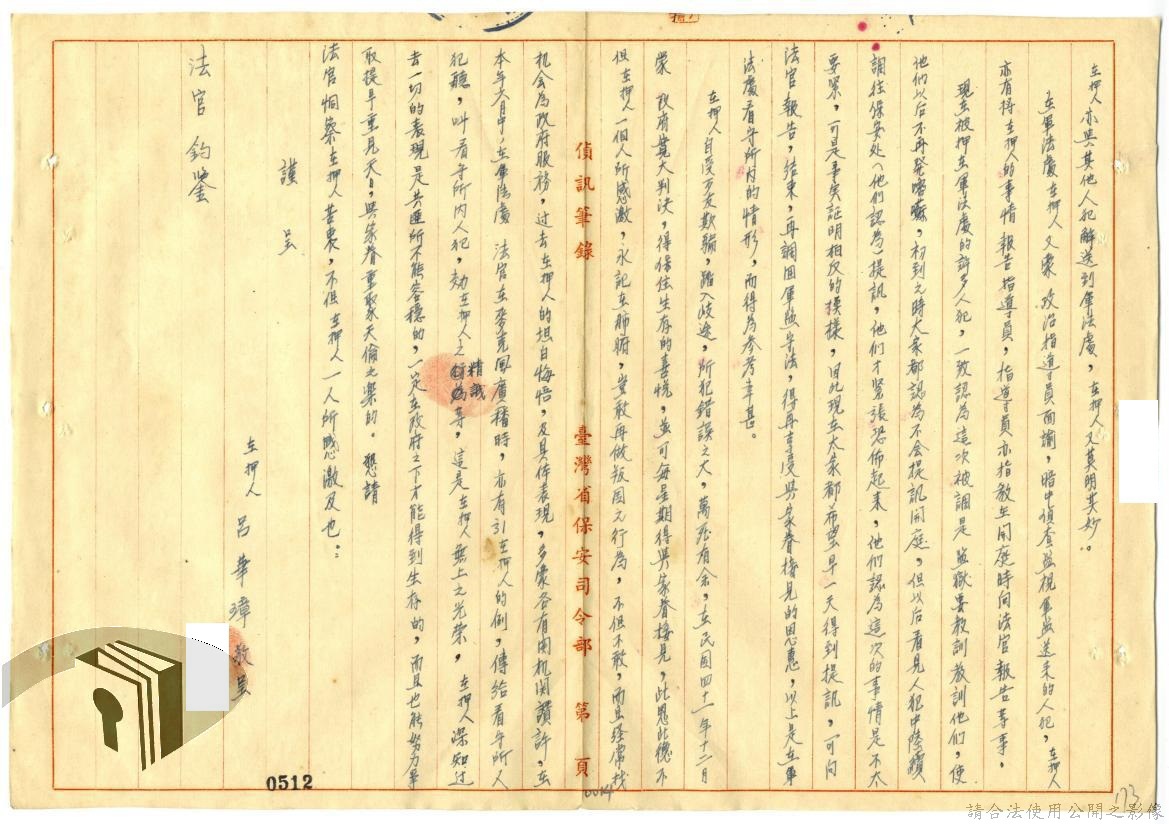 左押人亦與其他人犯解送到軍法處,左押人又莫明其妙。
在軍法處左押人又蒙 政治指導員面諭,暗中偵查監視軍監送來的人犯,左押人
亦有將左押人的事情報告指導員,指導員亦指教在開庭時向法官報告等事,
現在被押在軍法處的許多人犯,一致認為這次被調是監獄要教訓教訓他們,使
他們以后不再發嘮嘛,初到之時大家都認為不会提訊開庭,但以后看見人犯中陸續
調往保安处(他們認為)提訊,他們才緊張恐佈起来,他們認為這次的事情是不太
要緊,可是事实証明相反的模樣,因此現在大家都希望早一天得到提訊,可向
法官報告,結束,再調回軍監守法,得再享受與家眷接見的恩惠,以上是在軍
法處看守所內的情形,而得為參考幸甚。
左押人自受万友欺騙,踏入歧途,所犯錯誤之大,萬死有余,在民国四十一年十二月
蒙 政府寬大判決,得保住生存的喜悦,並可每星期得與家眷接見,此恩此德不
但左押人一個人所感激,永記在肺腑,豈敢再做叛国之行為,不但不敢,而且經常找
机会為政府服務,过去左押人的坦白悔悟,及具体表現,多蒙各有関机関讚許,在
本年六月中,在軍法處 法官在麥克風廣播時,亦有引左押人的例,傳給看守所人
犯聽,叫看守所內人犯,効左押人之精誠等,這是左押人無上之光榮, 左押人深知过
去一切的表現是共匪所不能容穩的,一定在政府之下才能得到生存的,而且也能努力爭
取提早重見天日,與家眷重聚天倫之樂的。 懇請
法官恫察左押人苦衷,不但左押人一人所感激及也:
謹 呈
法官 鈞鑒
左押人 呂華璋 敬呈
偵訊筆錄 臺灣省保安司令部 第 頁
0512
0014
173
請合法使用公開之影像